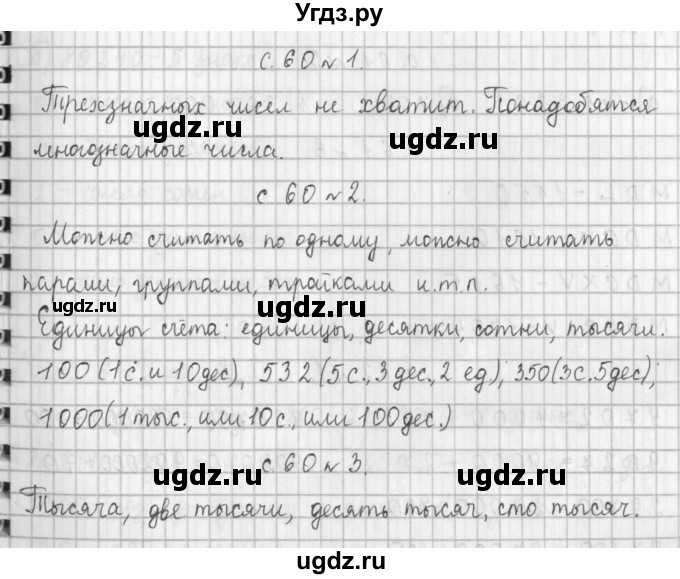 Угдз.ру
с. 60 № 1.
Трехзначных чисел не хватит. Понадобятся
ugdz.ru ugdz.ru
многозначные числа.
с. 60 № 2.
ugdz.ru
Можно считать по одному, можно считать
парами, группами, тройками и.т.п.
ugdz.ru
Единицы счёта: единицы, десятки, сотни, тысячи.
ugdz.ru ugdz.ru
100 (1с. и 10дес), 532 (5с., 3 дес., 2 ед), 350 (3с. 5дес);
1000 (1 тыс., или 10с., или 100дес.)
с. 60 № 3.
ugdz.ru ugdz.ru
Тысяча, две тысячи, десять тысяч, сто тысяч.
ugdz.ru